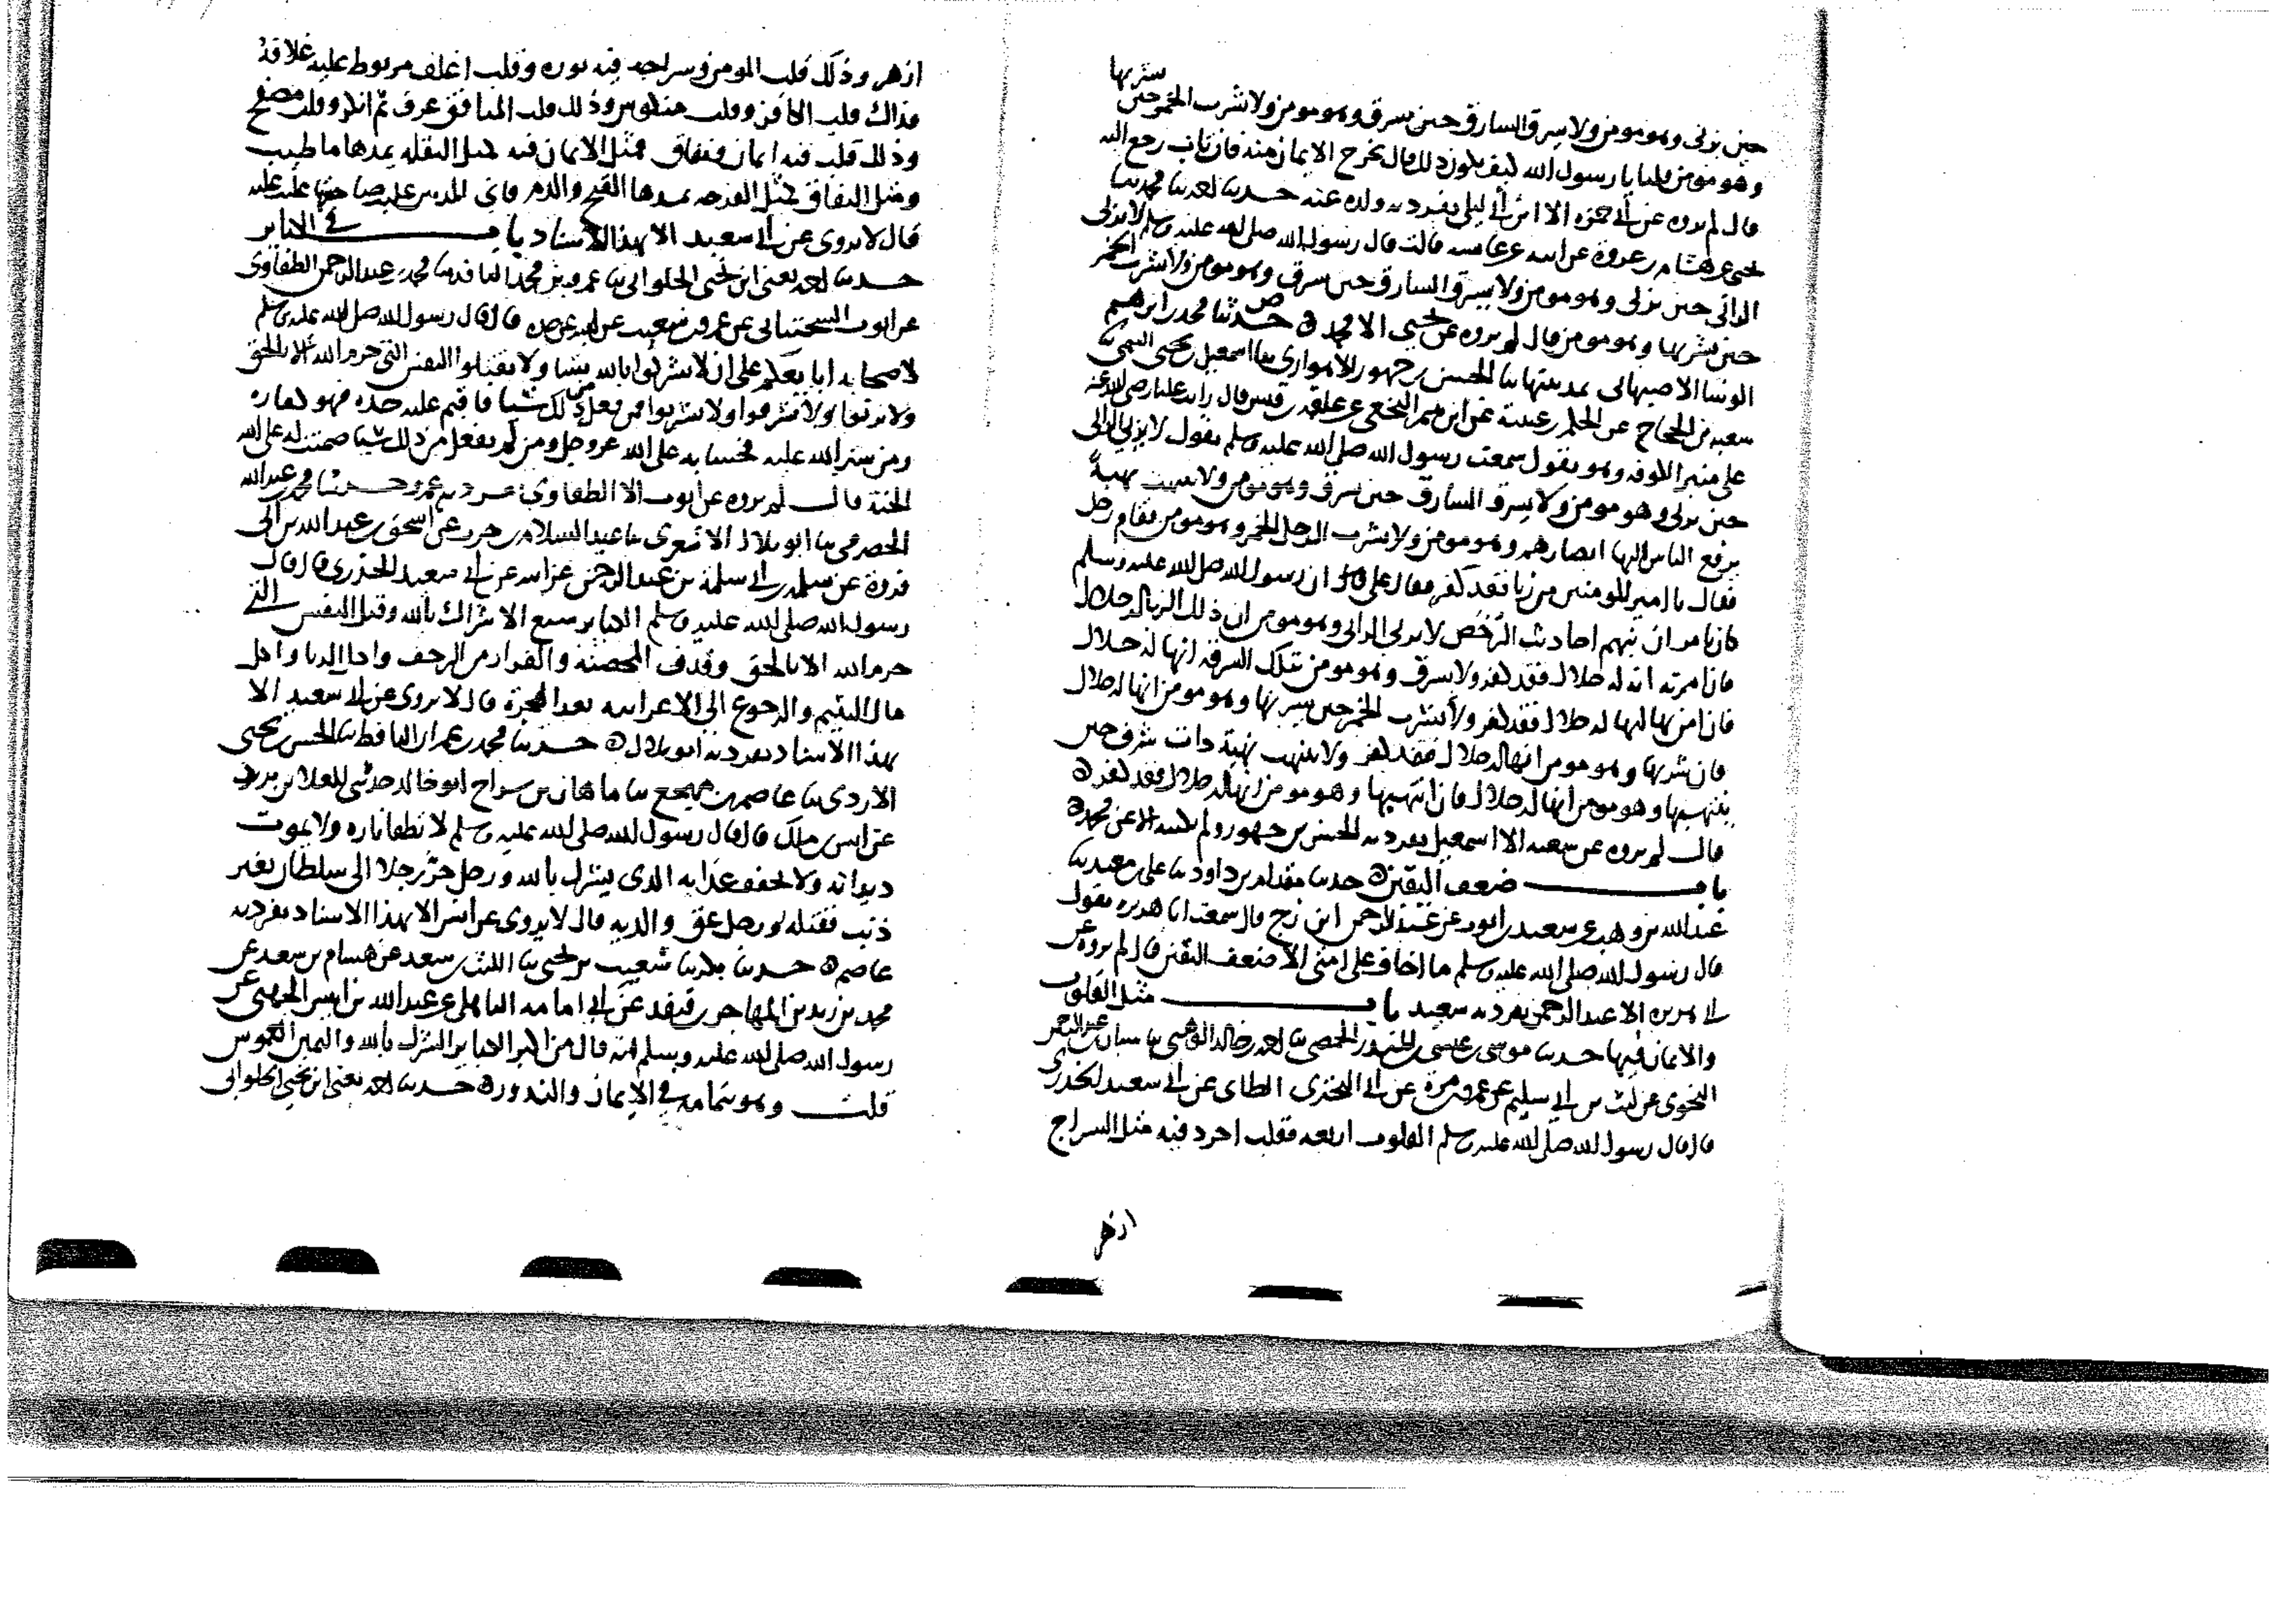 حين يزنى وهو مومن ولا يسرق السارق حين يسرق وهو مومن ولا يشرب الخمر حين
يشربها
وهو مومن قلنا يا رسول الله كيف يكون ذلك قال يخرج الايمان منه فان تاب رجع اليه
قال لم يروه عن ابى حمزه الا ابن ابى ليلى تفرد به ولده عنه حدثنا احمد بنا محمد بنا
يحيى عن هشام بن عروة عن ابيه عن عايشه قالت قال رسول الله صلى الله عليه وسلم لا يزنى
الزانى حين يزنى وهو مومن ولا يسرق السارق حين يسرق وهو مومن ولا يشرب الخمر
حين يشربها وهو مومن قال لم يروه عن يحيى الا محمد حدثنا محمد بن ابراهيم
الوشا الاصبهانى بمدينتها بنا الحسن بن جهور الاهوازى بنا اسمعيل بن يحيى التيمى بنا
سعيد بن الحجاج عن الحكم بن عيينة عن ابرهيم النخعى عن علقمه بن قيس قال رايت عليا رضى الله عنه
على منبر الكوفه وهو يقول سمعت رسول الله صلى الله عليه وسلم يقول لا يزنى الزانى
حين يزنى وهو مومن ولا يسرق السارق حين يسرق وهو مومن ولا ينتهب نهبة
يرفع الناس اليها ابصارهم وهو مومن ولا يشرب الرجل الخمر وهو مومن فقام رجل
فقال يا امير المومنين من زنا فقد كفر فقال على ان رسول الله صلى الله عليه وسلم
كان يامر ان نبهم احاديث الرخص لا يزنى الزانى وهو مومن ان ذلك الزنا له حلال
فان امن به انه له حلال فقد كفر ولا يسرق وهو مومن بتلك السرقه انها له حلال
فان امن بها انها له حلال فقد كفر ولا يشرب الخمر حين يشربها وهو مومن انها له حلال
فان شربها وهو مومن انها له حلال فقد كفر ولا ينتهب نهبة ذات شرف حين
ينتهبها وهو مومن انها له حلال فان انتهبها وهو مومن انها له حلال فقد كفر
قال لم يروه عن سعيد الا اسمعيل تفرد به الحسن بن جهور ولم نكتبه الا عن محمد
باب ضعف اليقين حدثنا مقدام بن داود بنا على بن معبد بنا
عبد الله بن وهب عن سعيد بن ابى ايوب عن عبد الرحمن ابن بزرج قال سمعت ابا هريره يقول
قال رسول الله صلى الله عليه وسلم ما اخاف على امتى الا ضعف اليقين قال لم يروه عن
ابى هريره الا عبد الرحمن تفرد به سعيد باب مثل القلوب
والايمان فيها حدثنا موسى بن عيسى بن المنذر الحمصى بنا احمد بن خالد الوهبى بنا شيبان بن عبد الرحمن
النحوى عن ليث بن ابى سليم عن عمرو بن مرة عن ابى البخترى الطاى عن ابى سعيد الخدرى
قال قال رسول الله صلى الله عليه وسلم القلوب اربعه فقلب اجرد فيه مثل السراج
ازهر
ازهر وذلك قلب المومن وسراجه فيه نوره وقلب اغلف مربوط عليه غلافه
فذاك قلب الكافر وقلب منكوس وذلك قلب المنافق عرف ثم انكر وقلب مصفح
وذلك قلب فيه ايمان ونفاق فمثل الايمان فيه كمثل البقله يمدها ما طيب
ومثل النفاق كمثل القرحه يمدها القيح والدم فاى المدتين غلبت صاحبتها غلبت عليه
قال لا يروى عن ابى سعيد الا بهذا الاسناد باب فى الكباير
حدثنا احمد يعنى ابن يحيى الحلوانى بنا عمرو بن محمد الناقد بنا محمد بن عبد الرحمن الطفاوى
عن ايوب السختيانى عن عمرو بن شعيب عن ابيه عن جده قال قال رسول الله صلى الله عليه وسلم
لاصحابه ابايعكم على ان لا تشركوا بالله شيا ولا تقتلوا النفس التى حرم الله الا بالحق
ولا تزنوا ولا تسرقوا ولا تشربوا فمن فعل من ذلك شيا فاقيم عليه حده فهو كفاره
ومن ستر الله عليه فحسابه على الله عز وجل ومن لم يفعل من ذلك شيا ضمنت له على الله
الجنة قال لم يروه عن ايوب الا الطفاوى تفرد به عمرو حدثنا محمد بن عبد الله
الحضرمى بنا ابو بلال الاشعرى بنا عبد السلام بن حرب عن اسحق بن عبد الله بن ابى
فروة عن سلمه بن ابى سلمة بن عبد الرحمن عن ابيه عن ابى سعيد الخدرى قال قال
رسول الله صلى الله عليه وسلم الكباير سبع الاشراك بالله وقتل النفس التى
حرم الله الا بالحق وقذف المحصنة والفرار من الزحف واكل الربا واكل
مال اليتيم والرجوع الى الاعرابيه بعد الهجرة قال لا يروى عن ابى سعيد الا
بهذا الاسناد تفرد به ابو بلال حدثنا محمد بن عمران الناقط بنا الحسن بن يحيى
الازدى بنا عاصم بن مهجع بنا ماهان بن سراج ابو خالد حدثنى العلا بن يزيد
عن انس بن ملك قال قال رسول الله صلى الله عليه وسلم لا تطفا ناره ولا يموت
ديدانه ولا يخفف عذابه الذى يشرك بالله ورجل جر رجلا الى سلطان بغير
ذنب فقتله ورجل عق والديه قال لا يروى عن انس الا بهذا الاسناد تفرد به
عاصم حدثنا بكر بنا شعيب بن يحيى بنا الليث بن سعد عن هشام بن سعد عن
محمد بن زيد بن المهاجر بن قنفد عن ابى امامه الباهلى عن عبد الله بن انيس الجهنى عن
رسول الله صلى الله عليه وسلم انه قال من اكبر الكباير الشرك بالله واليمين الغموس
قلت وهو بتمامه فى الايمان والندور حدثنا احمد يعنى ابن يحيى الحلوانى